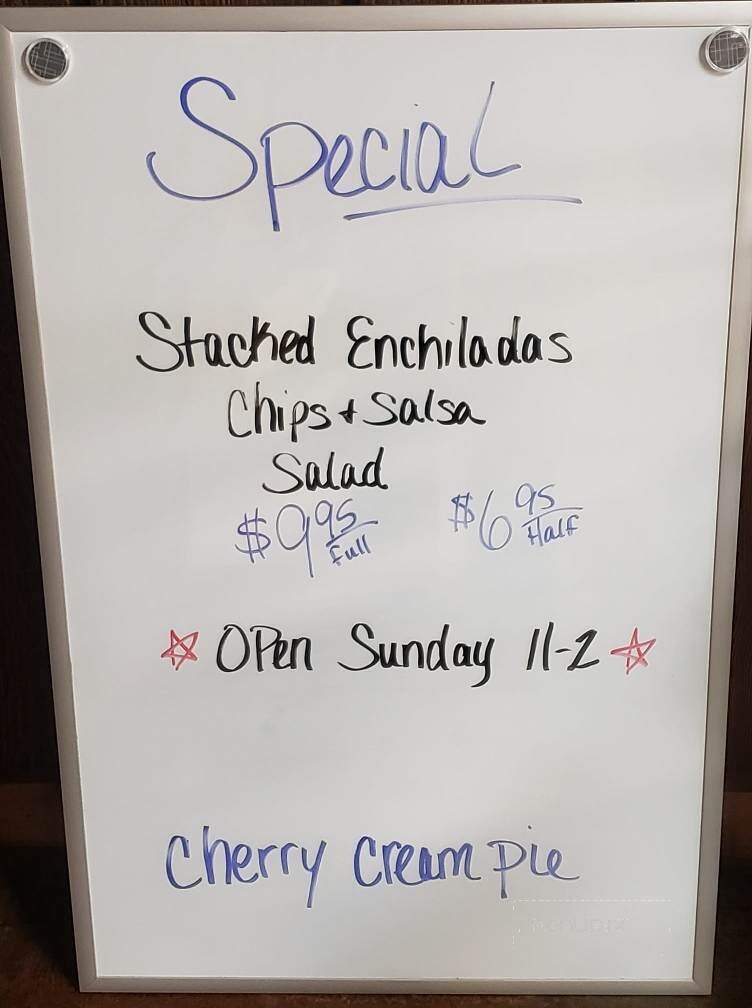 Special
Stacked Enchiladas
Chips + Salsa
Salad
$9.95 Full $6.95 Half
☆ Open Sunday 11-2 ☆
Cherry Cream Pie